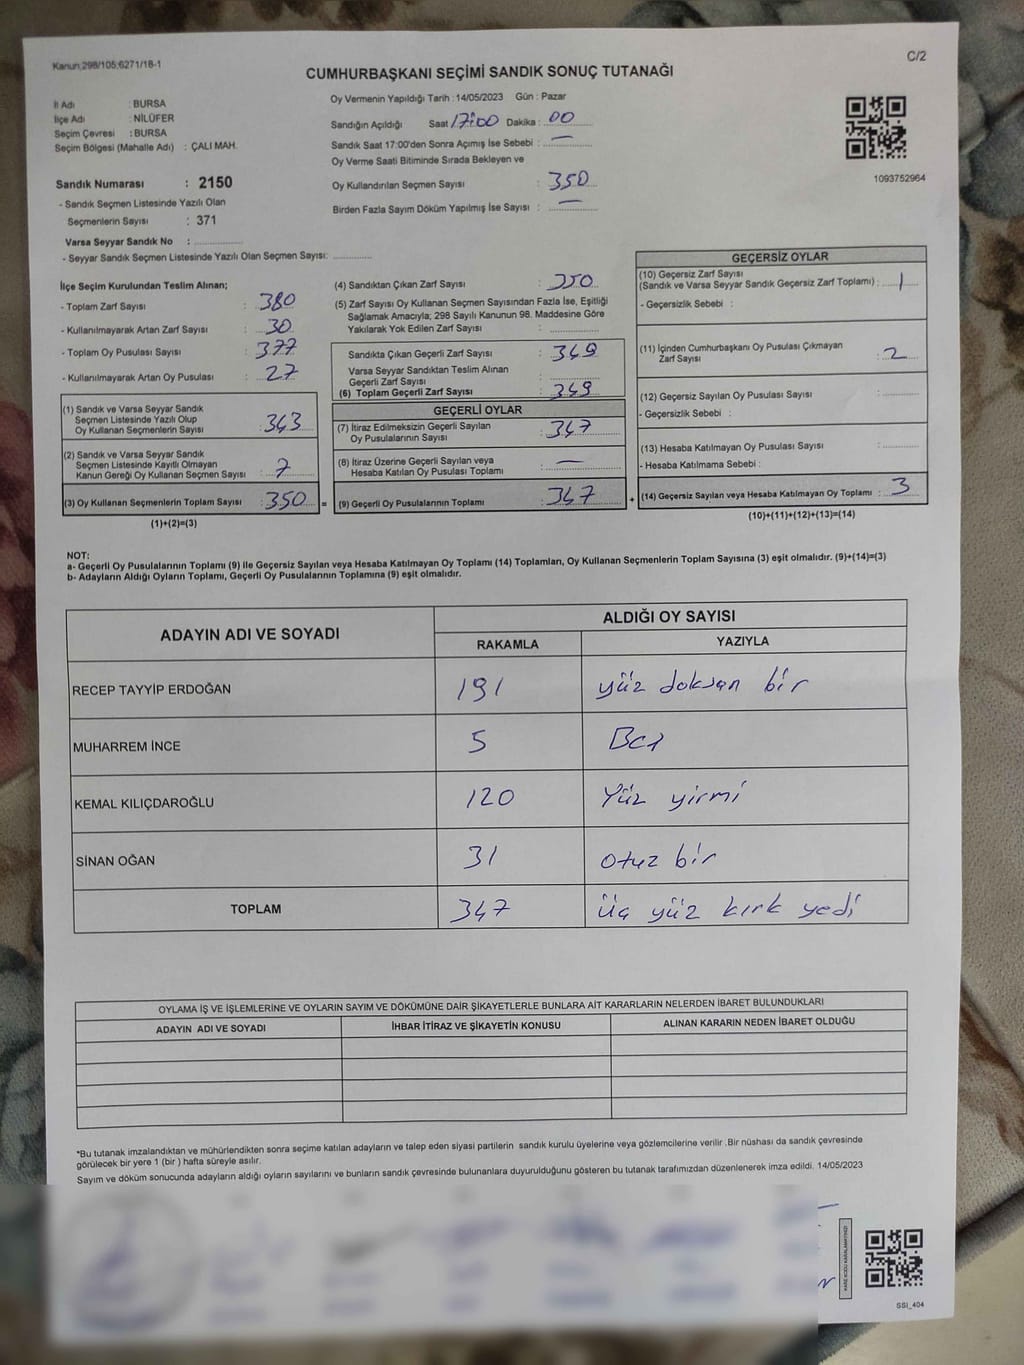 Kanun;298/105;6271/18-1
C/2
CUMHURBAŞKANI SEÇİMİ SANDIK SONUÇ TUTANAĞI
İl Adı : BURSA
İlçe Adı : NİLÜFER
Seçim Çevresi : BURSA
Seçim Bölgesi (Mahalle Adı) : ÇALI MAH.
Sandık Numarası : 2150
- Sandık Seçmen Listesinde Yazılı Olan
Seçmenlerin Sayısı : 371
Varsa Seyyar Sandık No :
- Seyyar Sandık Seçmen Listesinde Yazılı Olan Seçmen Sayısı:
Oy Vermenin Yapıldığı Tarih :14/05/2023 Gün : Pazar
Sandığın Açıldığı Saat 17:00 Dakika : 00
Sandık Saat 17:00'den Sonra Açımış İse Sebebi : —
Oy Verme Saati Bitiminde Sırada Bekleyen ve
Oy Kullandırılan Seçmen Sayısı : 350
Birden Fazla Sayım Döküm Yapılmış İse Sayısı : —
1093752964
İlçe Seçim Kurulundan Teslim Alınan;
- Toplam Zarf Sayısı : 380
- Kullanılmayarak Artan Zarf Sayısı : 30
- Toplam Oy Pusulası Sayısı : 377
- Kullanılmayarak Artan Oy Pusulası : 27
(1) Sandık ve Varsa Seyyar Sandık
Seçmen Listesinde Yazılı Olup
Oy Kullanan Seçmenlerin Sayısı : 343
(2) Sandık ve Varsa Seyyar Sandık
Seçmen Listesinde Kayıtlı Olmayan
Kanun Gereği Oy Kullanan Seçmen Sayısı : 7
(3) Oy Kullanan Seçmenlerin Toplam Sayısı : 350 =
(1)+(2)=(3)
(4) Sandıktan Çıkan Zarf Sayısı : 350
(5) Zarf Sayısı Oy Kullanan Seçmen Sayısından Fazla İse, Eşitliği
Sağlamak Amacıyla; 298 Sayılı Kanunun 98. Maddesine Göre
Yakılarak Yok Edilen Zarf Sayısı :
Sandıkta Çıkan Geçerli Zarf Sayısı : 349
Varsa Seyyar Sandıktan Teslim Alınan
Geçerli Zarf Sayısı :
(6) Toplam Geçerli Zarf Sayısı : 349
GEÇERLİ OYLAR
(7) İtiraz Edilmeksizin Geçerli Sayılan
Oy Pusulalarının Sayısı : 347
(8) İtiraz Üzerine Geçerli Sayılan veya
Hesaba Katılan Oy Pusulası Toplamı : —
(9) Geçerli Oy Pusulalarının Toplamı : 347 +
GEÇERSİZ OYLAR
(10) Geçersiz Zarf Sayısı
(Sandık ve Varsa Seyyar Sandık Geçersiz Zarf Toplamı) : 1
- Geçersizlik Sebebi :
(11) İçinden Cumhurbaşkanı Oy Pusulası Çıkmayan
Zarf Sayısı : 2
(12) Geçersiz Sayılan Oy Pusulası Sayısı :
- Geçersizlik Sebebi :
(13) Hesaba Katılmayan Oy Pusulası Sayısı :
- Hesaba Katılmama Sebebi :
(14) Geçersiz Sayılan veya Hesaba Katılmayan Oy Toplamı : 3
(10)+(11)+(12)+(13)=(14)
NOT:
a- Geçerli Oy Pusulalarının Toplamı (9) ile Geçersiz Sayılan veya Hesaba Katılmayan Oy Toplamı (14) Toplamları, Oy Kullanan Seçmenlerin Toplam Sayısına (3) eşit olmalıdır. (9)+(14)=(3)
b- Adayların Aldığı Oyların Toplamı, Geçerli Oy Pusulalarının Toplamına (9) eşit olmalıdır.
ADAYIN ADI VE SOYADI
ALDIĞI OY SAYISI
RAKAMLA YAZIYLA
RECEP TAYYİP ERDOĞAN 191 yüz doksan bir
MUHARREM İNCE 5 Beş
KEMAL KILIÇDAROĞLU 120 Yüz yirmi
SİNAN OĞAN 31 otuz bir
TOPLAM 347 üç yüz kırk yedi
OYLAMA İŞ VE İŞLEMLERİNE VE OYLARIN SAYIM VE DÖKÜMÜNE DAİR ŞİKAYETLERLE BUNLARA AİT KARARLARIN NELERDEN İBARET BULUNDUKLARI
ADAYIN ADI VE SOYADI İHBAR İTİRAZ VE ŞİKAYETİN KONUSU ALINAN KARARIN NEDEN İBARET OLDUĞU
*Bu tutanak imzalandıktan ve mühürlendikten sonra seçime katılan adayların ve talep eden siyasi partilerin sandık kurulu üyelerine veya gözlemcilerine verilir .Bir nüshası da sandık çevresinde
görülecek bir yere 1 (bir ) hafta süreyle asılır.
Sayım ve döküm sonucunda adayların aldığı oyların sayılarını ve bunların sandık çevresinde bulunanlara duyurulduğunu gösteren bu tutanak tarafımızdan düzenlenerek imza edildi. 14/05/2023
KARE KODU KARALAMAYINIZ!
SSI_404